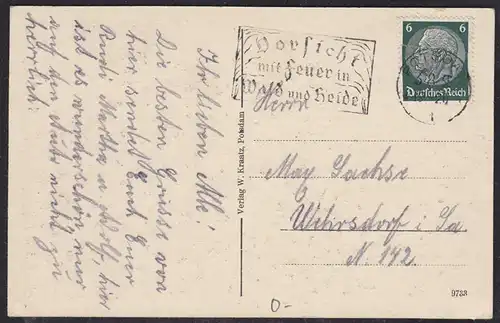 Ihr lieben Alle!
Die besten Grüsse von
hier sendet Euch Euer
Rudi Martha u Adolf, hier
ist es wunderschön nur
auf den Muts nicht zu
herrlich.
Verlag W. Kraatz, Potsdam
Vorsicht
mit Feuer in
Wald und Heide
6 6
Deutsches Reich
Herrn
Max Sachse
Wehrsdorf i. Sa.
N. 142.
9733
0-